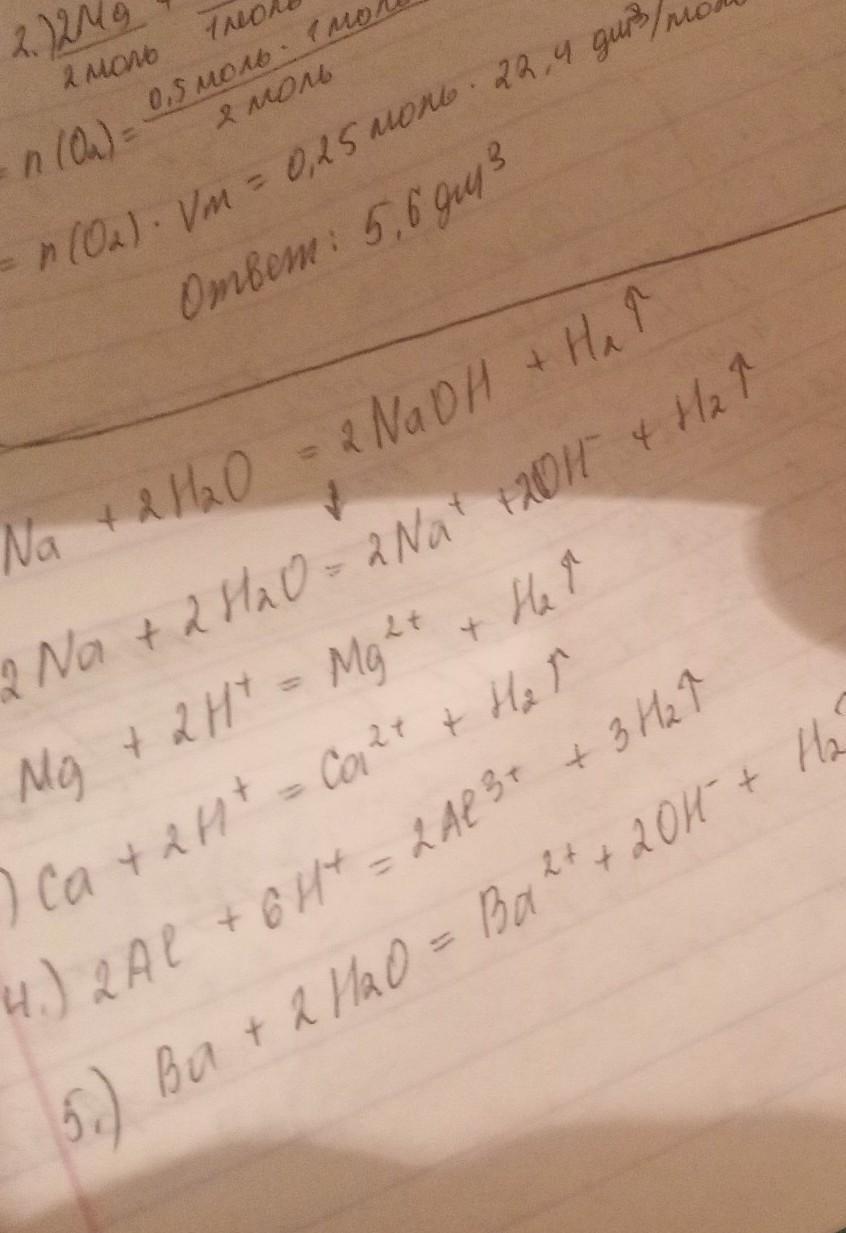 2.) 2Mg +
2 моль 1 моль
= n(O₂) = 0,5 моль · 1 моль
2 моль
= n(O₂) · Vm = 0,25 моль · 22,4 дм³/моль
Ответ: 5,6 дм³
Na + 2H₂O = 2NaOH + H₂↑
↓
2Na + 2H₂O = 2Na⁺ + 2OH⁻ + H₂↑
Mg + 2H⁺ = Mg²⁺ + H₂↑
) Ca + 2H⁺ = Ca²⁺ + H₂↑
4.) 2Al + 6H⁺ = 2Al³⁺ + 3H₂↑
5.) Ba + 2H₂O = Ba²⁺ + 2OH⁻ + H₂↑